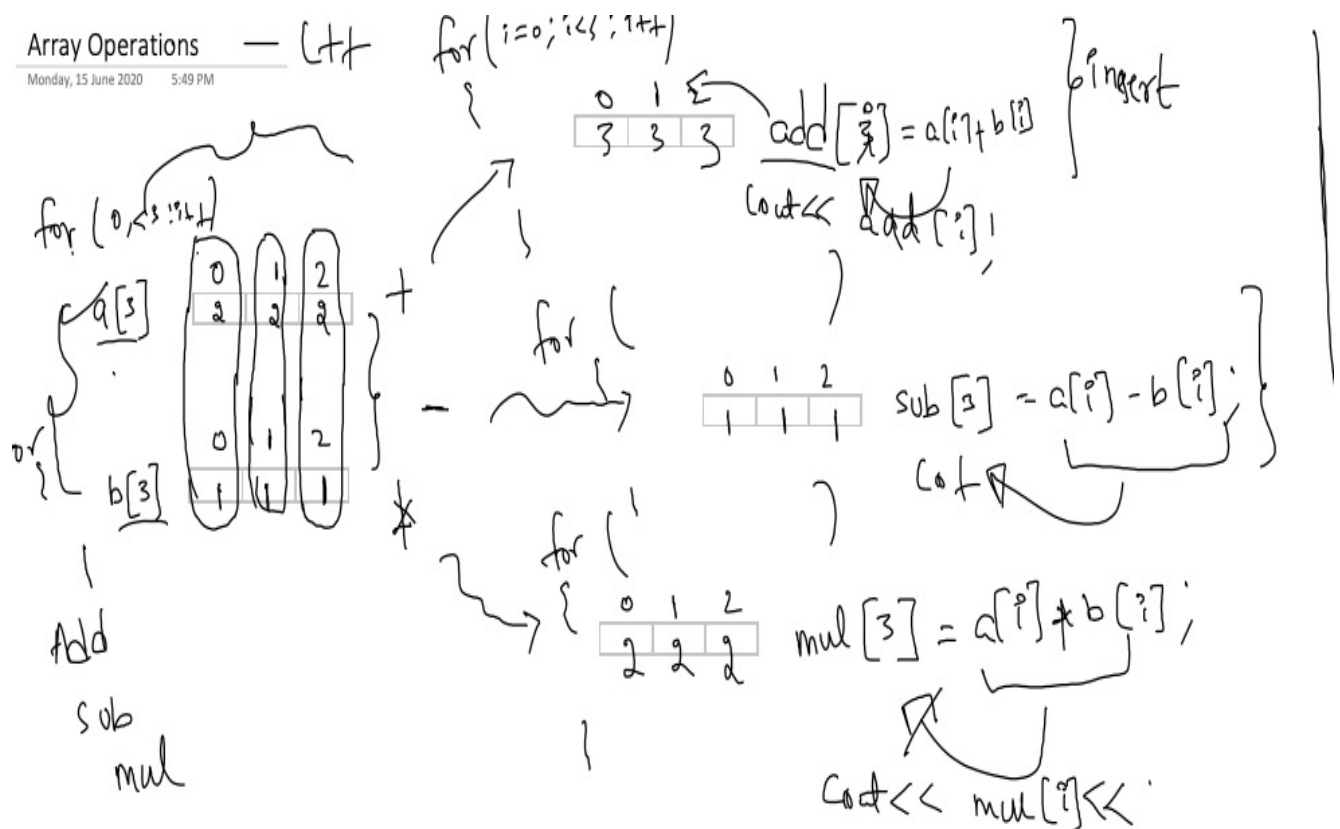 Array Operations — C++
Monday, 15 June 2020 5:49 PM
for (i=0; i<3; i++)
{
0 1 2
3 3 3
add[i] = a[i] + b[i]
} insert
cout<< add[i];
}
for (0,<3; i++)
0 1 2
a[3] 2 2 2
+
-
*
0 1 2
b[3] 1 1 1
or
{
Add
sub
mul
for ( )
{
0 1 2
1 1 1
sub[3] = a[i] - b[i];
Cot
}
for ( )
{
0 1 2
2 2 2
mul[3] = a[i] * b[i];
}
Cout<< mul[i]<<